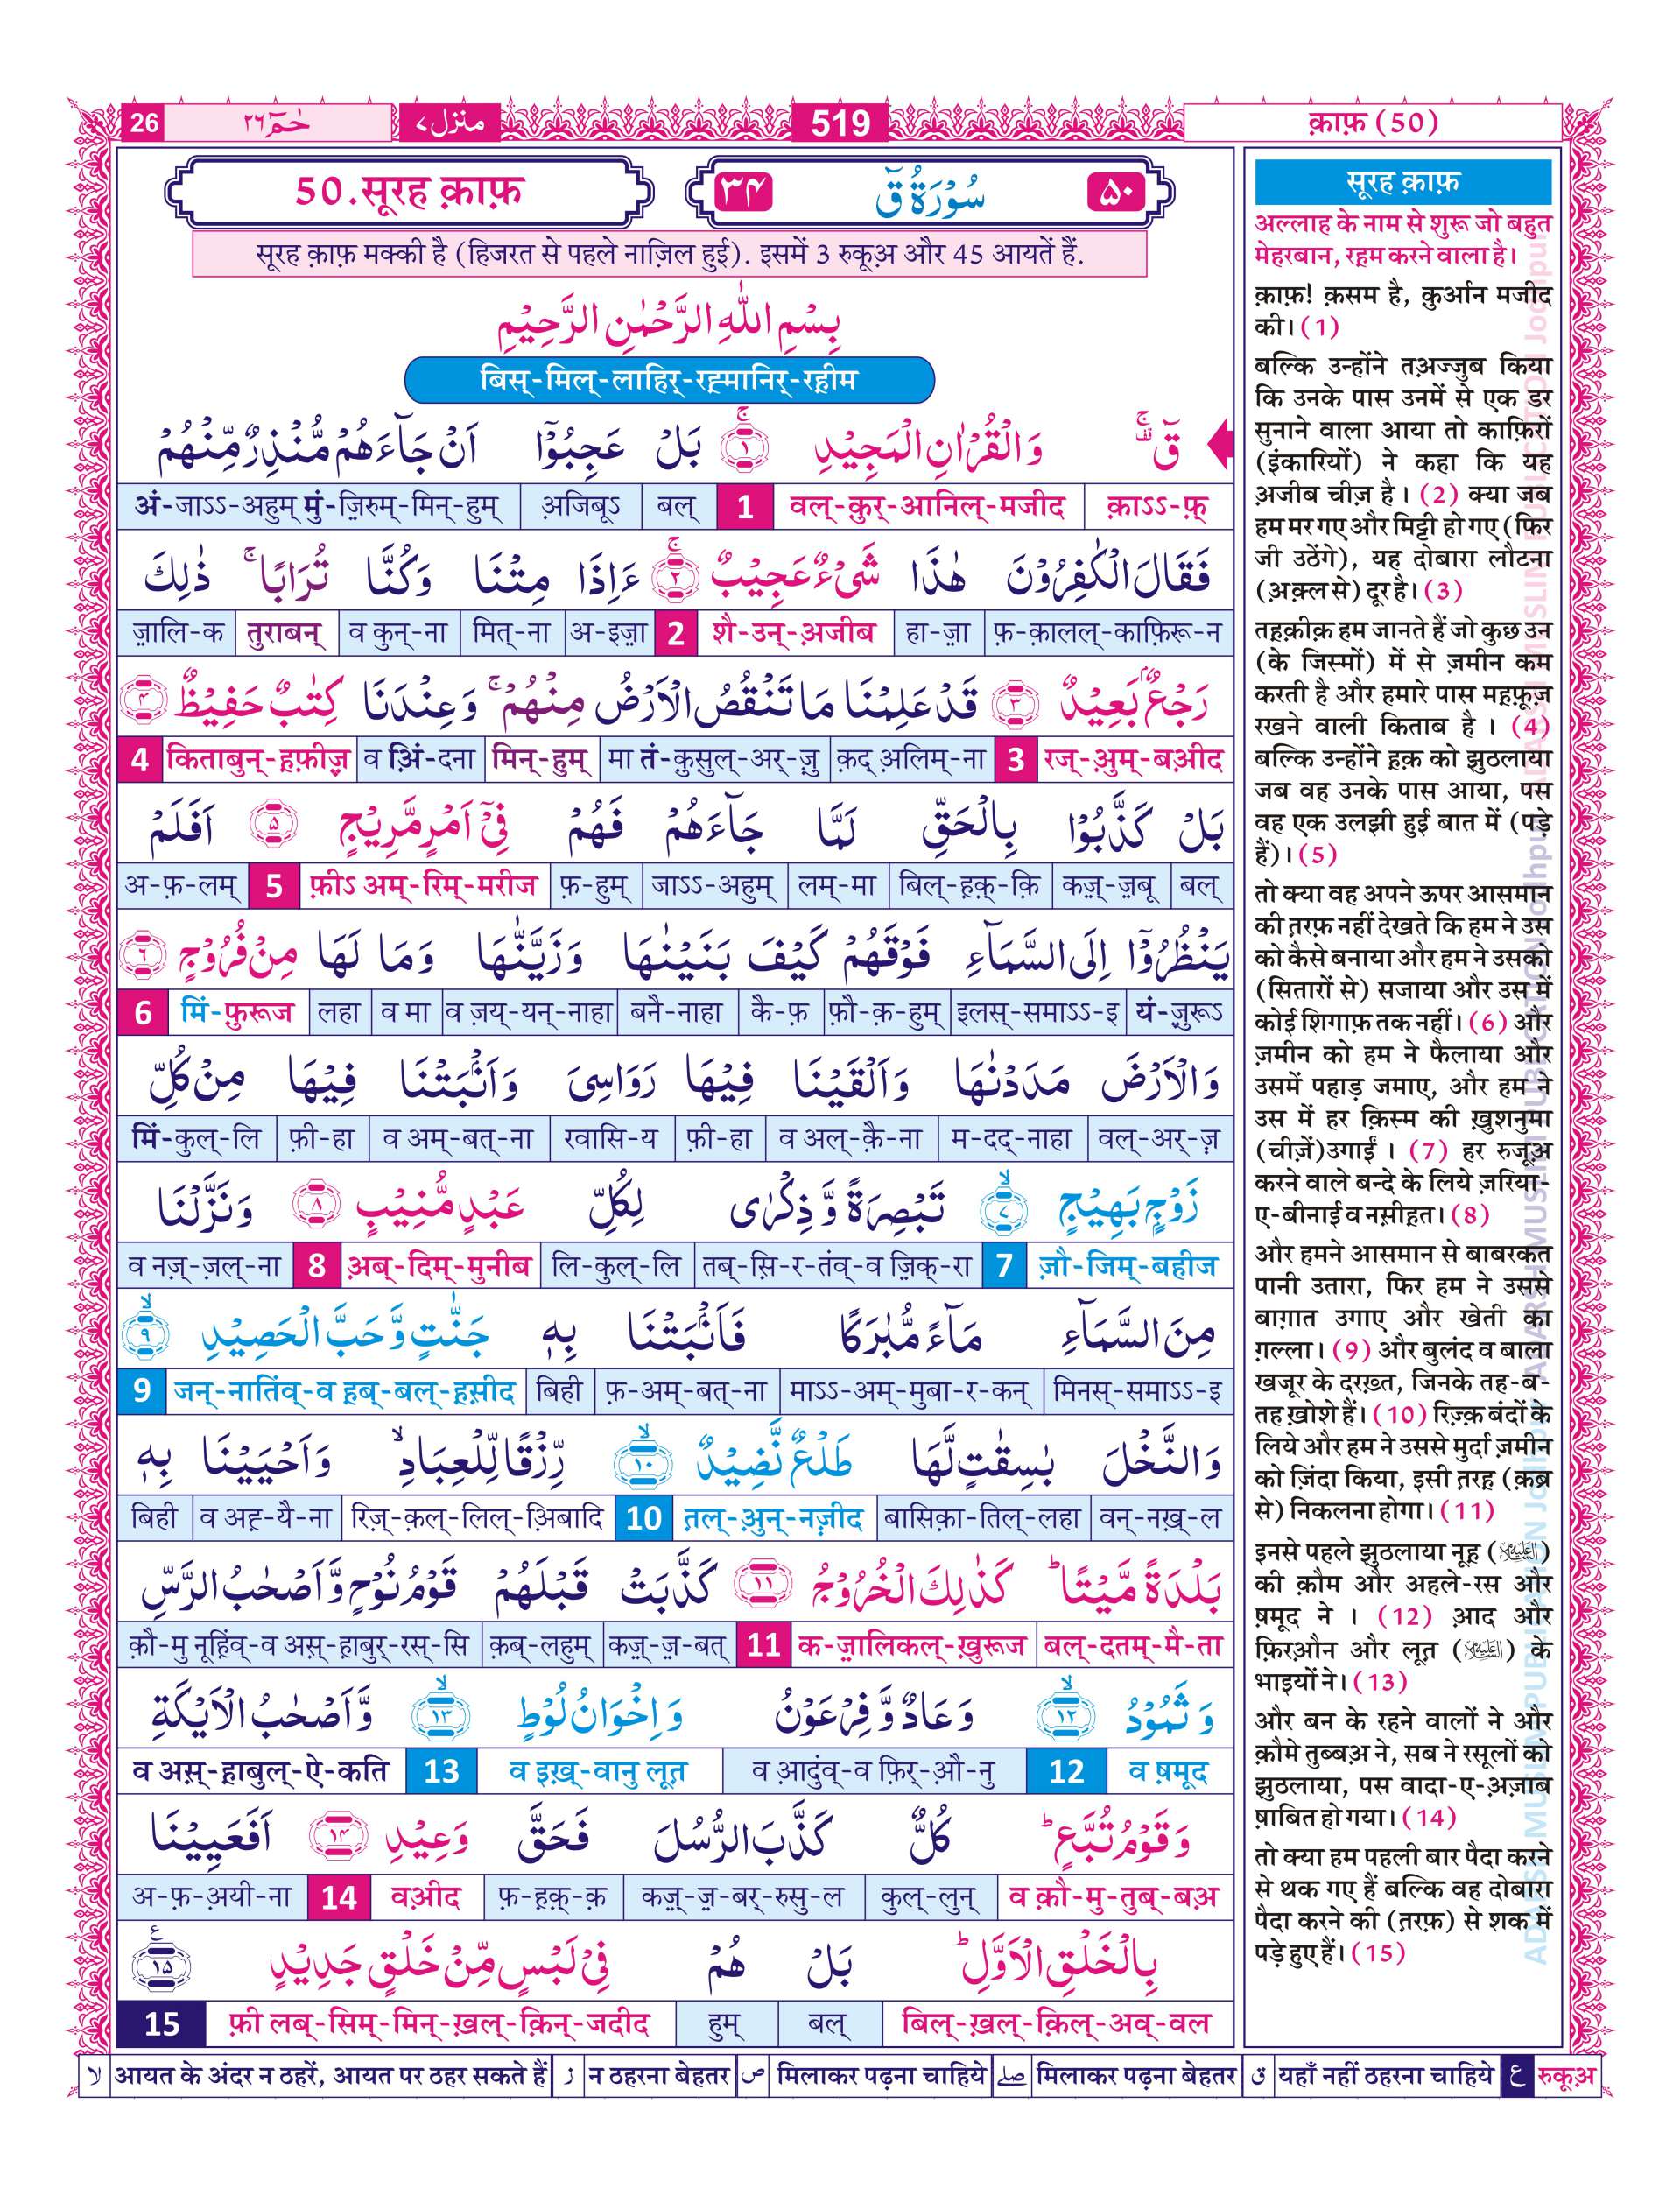 26 حٰمٓ ٢٦ منزل ٧ 519 क़ाफ़ (50)
50.सूरह क़ाफ़ ٣٤ سُوْرَةُ قٓ ٥٠
सूरह क़ाफ़ मक्की है (हिजरत से पहले नाज़िल हुई). इसमें 3 रुकूअ़ और 45 आयतें हैं.
بِسْمِ اللّٰهِ الرَّحْمٰنِ الرَّحِيْمِ
बिस्-मिल्-लाहिर्-रह़्मानिर्-रह़ीम
قٓ ۚ وَالْقُرْاٰنِ الْمَجِيْدِ ۚ﴿١﴾ بَلْ عَجِبُوْٓا اَنْ جَآءَهُمْ مُّنْذِرٌ مِّنْهُمْ
अं-जाऽऽ-अहुम् मुं-ज़िरुम्-मिन्-हुम् अ़जिबूऽ बल् 1 वल्-क़ुर्-आनिल्-मजीद क़ाऽऽ-फ़्
فَقَالَ الْكٰفِرُوْنَ هٰذَا شَيْءٌ عَجِيْبٌ ۚ﴿٢﴾ ءَاِذَا مِتْنَا وَكُنَّا تُرَابًا ۚ ذٰلِكَ
ज़ालि-क तुराबन् व कुन्-ना मित्-ना अ-इज़ा 2 शै-उन्-अ़जीब हा-ज़ा फ़-क़ालल्-काफ़िरू-न
رَجْعٌۢ بَعِيْدٌ ﴿٣﴾ قَدْ عَلِمْنَا مَا تَنْقُصُ الْاَرْضُ مِنْهُمْ ۚ وَعِنْدَنَا كِتٰبٌ حَفِيْظٌ ﴿٤﴾
4 किताबुन्-ह़फ़ीज़ व अ़िं-दना मिन्-हुम् मा तं-क़ुसुल्-अर्-ज़ु क़द् अ़लिम्-ना 3 रज्-अ़ुम्-बअ़ीद
بَلْ كَذَّبُوْا بِالْحَقِّ لَمَّا جَآءَهُمْ فَهُمْ فِيْٓ اَمْرٍ مَّرِيْجٍ ﴿٥﴾ اَفَلَمْ
अ-फ़-लम् 5 फ़ीऽ अम्-रिम्-मरीज फ़-हुम् जाऽऽ-अहुम् लम्-मा बिल्-ह़क़्-क़ि कज़्-ज़बू बल्
يَنْظُرُوْٓا اِلَى السَّمَآءِ فَوْقَهُمْ كَيْفَ بَنَيْنٰهَا وَزَيَّنّٰهَا وَمَا لَهَا مِنْ فُرُوْجٍ ﴿٦﴾
6 मिं-फ़ुरूज लहा व मा व ज़य्-यन्-नाहा बनै-नाहा कै-फ़ फ़ौ-क़-हुम् इलस्-समाऽऽ-इ यं-ज़ुरूऽ
وَالْاَرْضَ مَدَدْنٰهَا وَاَلْقَيْنَا فِيْهَا رَوَاسِيَ وَاَنْۢبَتْنَا فِيْهَا مِنْ كُلِّ
मिं-कुल्-लि फ़ी-हा व अम्-बत्-ना रवासि-य फ़ी-हा व अल्-क़ै-ना म-दद्-नाहा वल्-अर्-ज़
زَوْجٍۢ بَهِيْجٍ ۙ﴿٧﴾ تَبْصِرَةً وَّ ذِكْرٰى لِكُلِّ عَبْدٍ مُّنِيْبٍ ﴿٨﴾ وَنَزَّلْنَا
व नज़्-ज़ल्-ना 8 अ़ब्-दिम्-मुनीब लि-कुल्-लि तब्-सि-र-तंव्-व ज़िक्-रा 7 ज़ौ-जिम्-बहीज
مِنَ السَّمَآءِ مَآءً مُّبٰرَكًا فَاَنْۢبَتْنَا بِهٖ جَنّٰتٍ وَّ حَبَّ الْحَصِيْدِ ۙ﴿٩﴾
9 जन्-नातिंव्-व ह़ब्-बल्-ह़सीद बिही फ़-अम्-बत्-ना माऽऽ-अम्-मुबा-र-कन् मिनस्-समाऽऽ-इ
وَالنَّخْلَ بٰسِقٰتٍ لَّهَا طَلْعٌ نَّضِيْدٌ ۙ﴿١٠﴾ رِّزْقًا لِّلْعِبَادِ ۙ وَاَحْيَيْنَا بِهٖ
बिही व अह़्-यै-ना रिज़्-क़ल्-लिल्-अ़िबादि 10 त़ल्-अ़ुन्-नज़ीद बासिक़ा-तिल्-लहा वन्-नख़्-ल
بَلْدَةً مَّيْتًا ؕ كَذٰلِكَ الْخُرُوْجُ ﴿١١﴾ كَذَّبَتْ قَبْلَهُمْ قَوْمُ نُوْحٍ وَّ اَصْحٰبُ الرَّسِّ
क़ौ-मु नूह़िंव्-व अस्-ह़ाबुर्-रस्-सि क़ब्-लहुम् कज़्-ज़-बत् 11 क-ज़ालिकल्-ख़ुरूज बल्-दतम्-मै-ता
وَ ثَمُوْدُ ۙ﴿١٢﴾ وَ عَادٌ وَّ فِرْعَوْنُ وَ اِخْوَانُ لُوْطٍ ۙ﴿١٣﴾ وَّ اَصْحٰبُ الْاَيْكَةِ
व अस्-ह़ाबुल्-ऐ-कति 13 व इख़्-वानु लूत़ व आ़दुंव्-व फ़िर्-औ़-नु 12 व स़मूद
وَ قَوْمُ تُبَّعٍ ؕ كُلٌّ كَذَّبَ الرُّسُلَ فَحَقَّ وَعِيْدِ ﴿١٤﴾ اَفَعَيِيْنَا
अ-फ़-अ़यी-ना 14 वअ़ीद फ़-ह़क़्-क़ कज़्-ज़-बर्-रुसु-ल कुल्-लुन् व क़ौ-मु-तुब्-बअ़
بِالْخَلْقِ الْاَوَّلِ ؕ بَلْ هُمْ فِيْ لَبْسٍ مِّنْ خَلْقٍ جَدِيْدٍ ﴿١٥﴾ ع
15 फ़ी लब्-सिम्-मिन्-ख़ल्-क़िन्-जदीद हुम् बल् बिल्-ख़ल्-क़िल्-अव्-वल
सूरह क़ाफ़
अल्लाह के नाम से शुरू जो बहुत
मेहरबान, रह़म करने वाला है।
क़ाफ़! क़सम है, क़ुर्आन मजीद
की। (1)
बल्कि उन्होंने तअ़ज्जुब किया
कि उनके पास उनमें से एक डर
सुनाने वाला आया तो काफ़िरों
(इंकारियों) ने कहा कि यह
अ़जीब चीज़ है। (2) क्या जब
हम मर गए और मिट्टी हो गए (फिर
जी उठेंगे), यह दोबारा लौटना
(अ़क़्ल से) दूर है। (3)
तह़क़ीक़ हम जानते हैं जो कुछ उन
(के जिस्मों) में से ज़मीन कम
करती है और हमारे पास मह़फ़ूज़
रखने वाली किताब है। (4)
बल्कि उन्होंने ह़क़ को झुठलाया
जब वह उनके पास आया, पस
वह एक उलझी हुई बात में (पड़े
हैं)। (5)
तो क्या वह अपने ऊपर आसमान
की त़रफ़ नहीं देखते कि हम ने उस
को कैसे बनाया और हम ने उसको
(सितारों से) सजाया और उस में
कोई शिगाफ़ तक नहीं। (6) और
ज़मीन को हम ने फैलाया और
उसमें पहाड़ जमाए, और हम ने
उस में हर क़िस्म की ख़ुशनुमा
(चीज़ें)उगाईं। (7) हर रुजूअ़
करने वाले बन्दे के लिये ज़रिया-
ए-बीनाई व नस़ीह़त। (8)
और हमने आसमान से बाबरकत
पानी उतारा, फिर हम ने उससे
बाग़ात उगाए और खेती का
ग़ल्ला। (9) और बुलंद व बाला
खजूर के दरख़्त, जिनके तह-ब-
तह ख़ोशे हैं। (10) रिज़्क़ बंदों के
लिये और हम ने उससे मुर्दा ज़मीन
को ज़िंदा किया, इसी त़रह़ (क़ब्र
से) निकलना होगा। (11)
इनसे पहले झुठलाया नूह़ (عليه السلام)
की क़ौम और अहले-रस और
स़मूद ने। (12) आ़द और
फ़िरऔ़न और लूत़ (عليه السلام) के
भाइयों ने। (13)
और बन के रहने वालों ने और
क़ौमे तुब्बअ़ ने, सब ने रसूलों को
झुठलाया, पस वादा-ए-अ़ज़ाब
स़ाबित हो गया। (14)
तो क्या हम पहली बार पैदा करने
से थक गए हैं बल्कि वह दोबारा
पैदा करने की (त़रफ़) से शक में
पड़े हुए हैं। (15)
لا आयत के अंदर न ठहरें, आयत पर ठहर सकते हैं ز न ठहरना बेहतर ص मिलाकर पढ़ना चाहिये صلے मिलाकर पढ़ना बेहतर ق यहाँ नहीं ठहरना चाहिये ع रुकूअ़